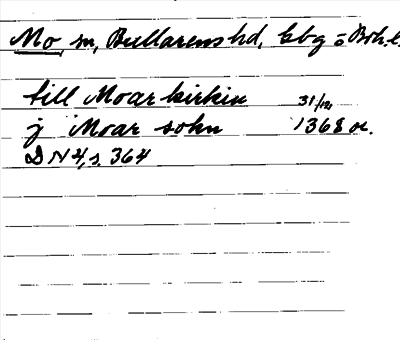 Mo, sn, Bullarens hd, Gbg o Boh. l.
till Moar kirkiu 31/12
j Moar sokn 1368 or.
DN 4, s. 364